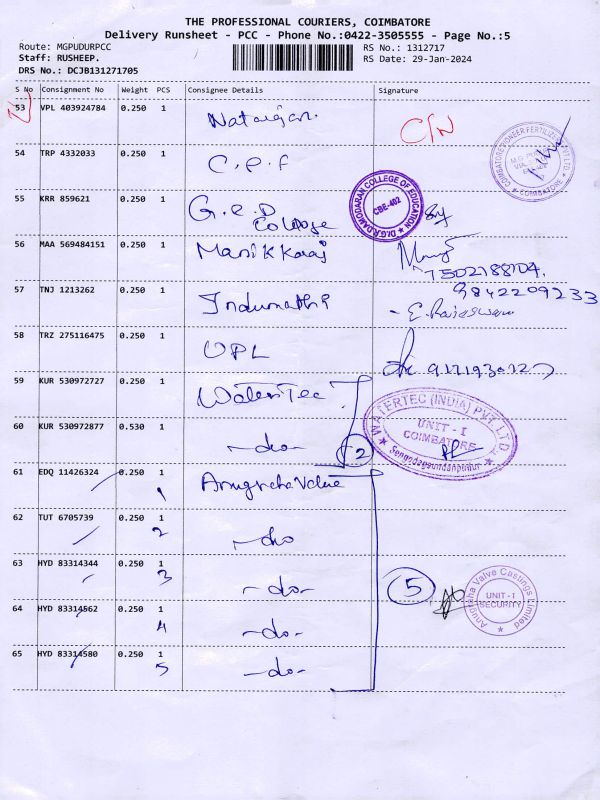 THE PROFESSIONAL COURIERS, COIMBATORE
Delivery Runsheet - PCC - Phone No.:0422-3505555 - Page No.:5
Route: MGPUDURPCC RS No.: 1312717
Staff: RUSHEEP. RS Date: 29-Jan-2024
DRS No.: DCJB131271705
S No Consignment No Weight PCS Consignee Details Signature
53 VPL 403924784 0.250 1 Natarajan. C/N
54 TRP 4332033 0.250 1 C.P.F
COIMBATORE PIONEER FERTILIZERS PVT LTD
COIMBATORE
55 KRR 859621 0.250 1 G.R.D College
Dr.G.R.DAMODARAN COLLEGE OF EDUCATION
CBE-402
56 MAA 569484151 0.250 1 Manikkaraj
7502188704.
57 TNJ 1213262 0.250 1 Indumathi
9842209233
- E. Rajeswari
58 TRZ 275116475 0.250 1 UPL
59 KUR 530972727 0.250 1 WaterTec
60 KUR 530972877 0.530 1 -do- 2
WATERTEC (INDIA) PVT. LTD.
UNIT - I
COIMBATORE
61 EDQ 11426324 0.250 1 Anugraha Valve
1
62 TUT 6705739 0.250 1 -do
2
63 HYD 83314344 0.250 1 -do-
3
5
64 HYD 83314562 0.250 1 -do-
4
Anugraha Valve Castings Limited
UNIT-I
SECURITY
65 HYD 83314580 0.250 1 -do-
5